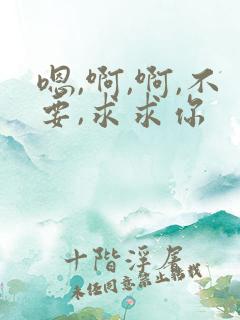 嗯,啊,啊,不
要,求求你
十階浮屠
未经同意禁止转载